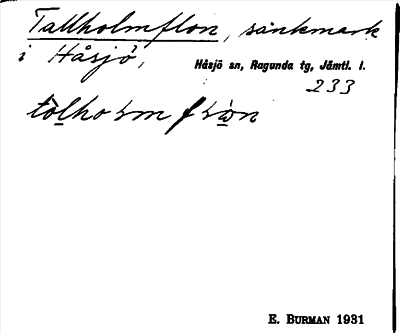 Tallholmflon, sänkmark
i Håsjö,
Håsjö sn, Ragunda tg, Jämtl. l.
233
E. BURMAN 1931